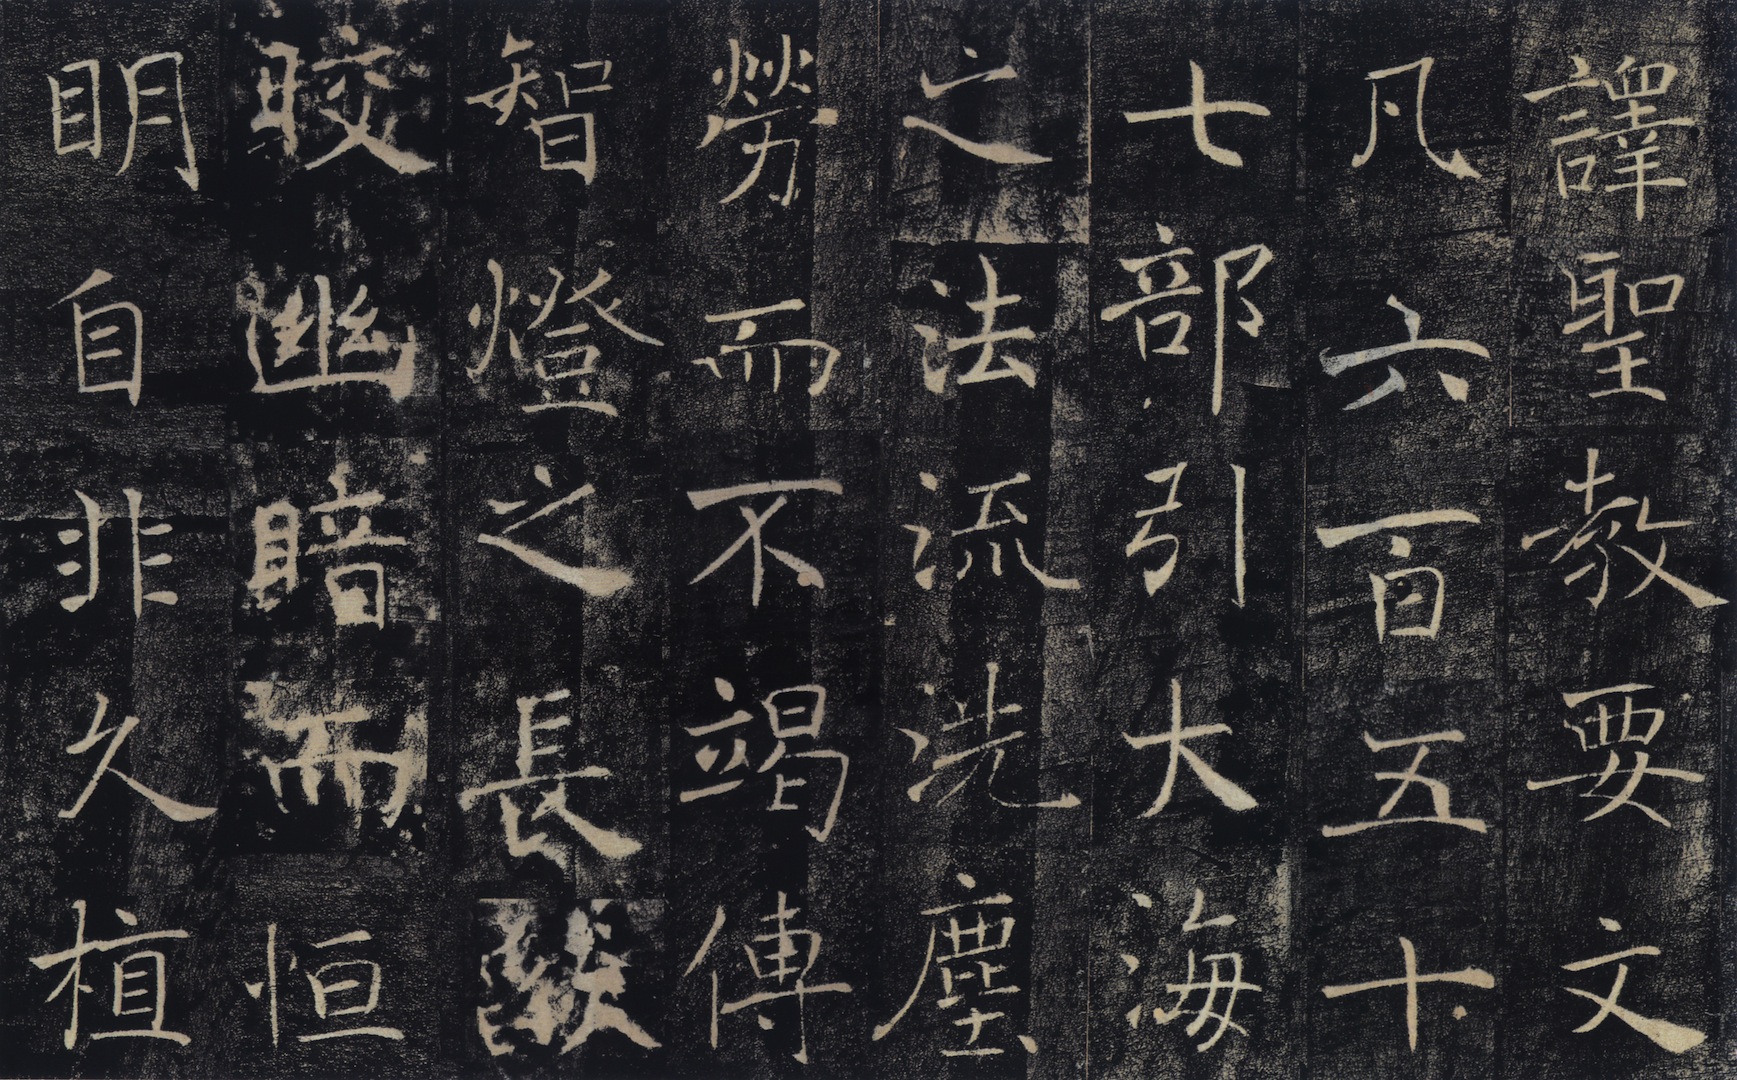 譯聖教要文
凡六百五十
七部引大海
之法流洗塵
勞而不竭傳
智燈之長燄
晈幽暗而恒
明自非久植